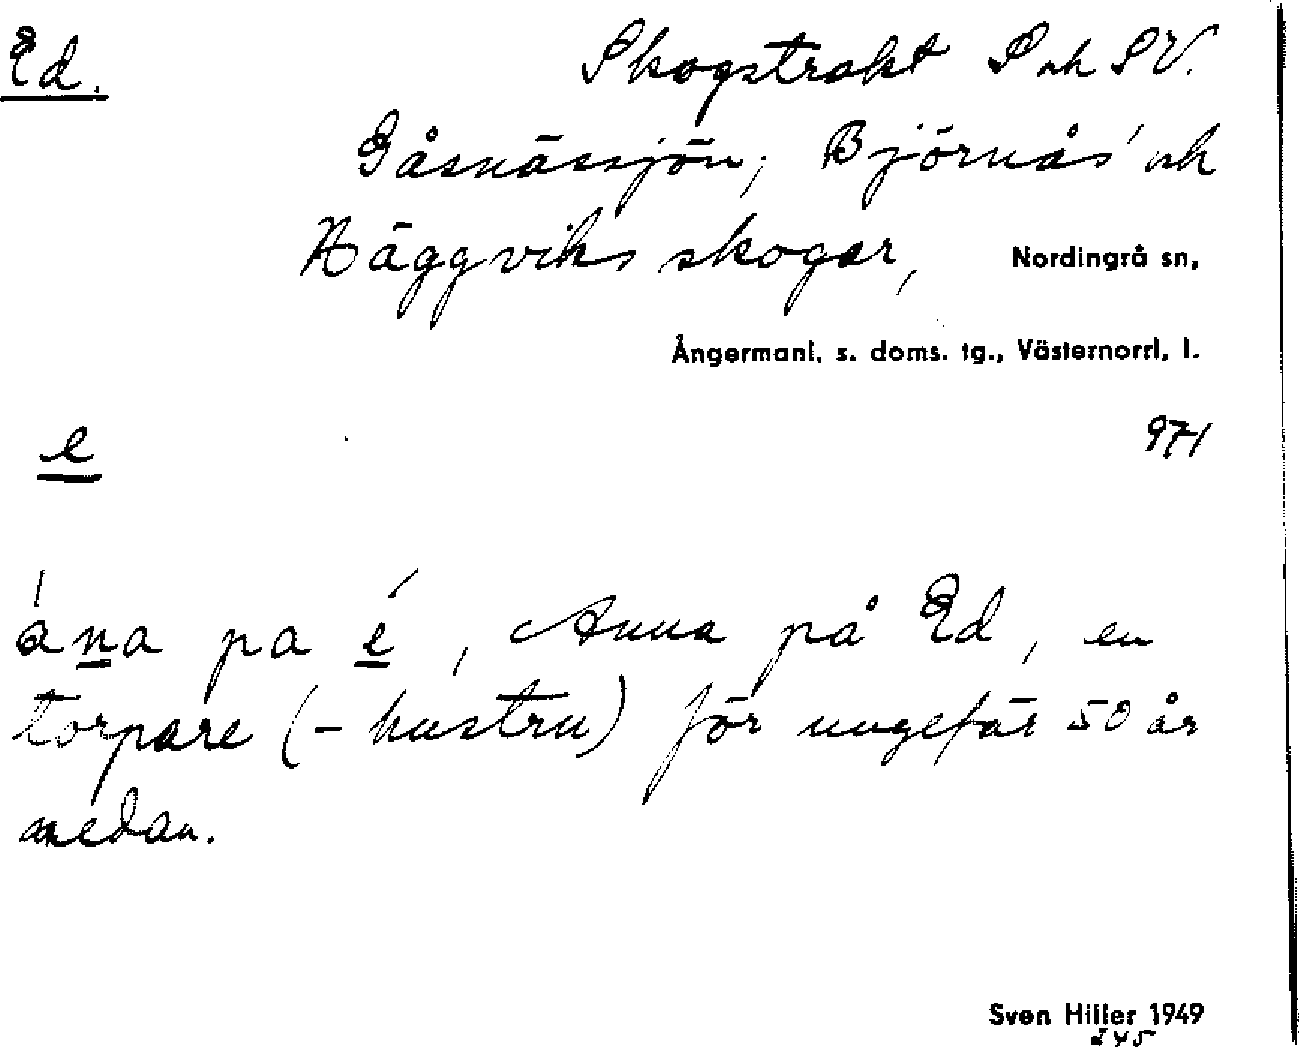 Ed.
Skogstrakt S och SV.
Gåsnässjön; Björnås' och
Häggviks skogar, Nordingrå sn,
Ångermanl. s. doms. tg., Västernorrl. l.
e
971
ána pa é, Anna på Ed, en
torpare (-hustru) för ungefär 50 år
sedan.
Sven Hiller 1949
245